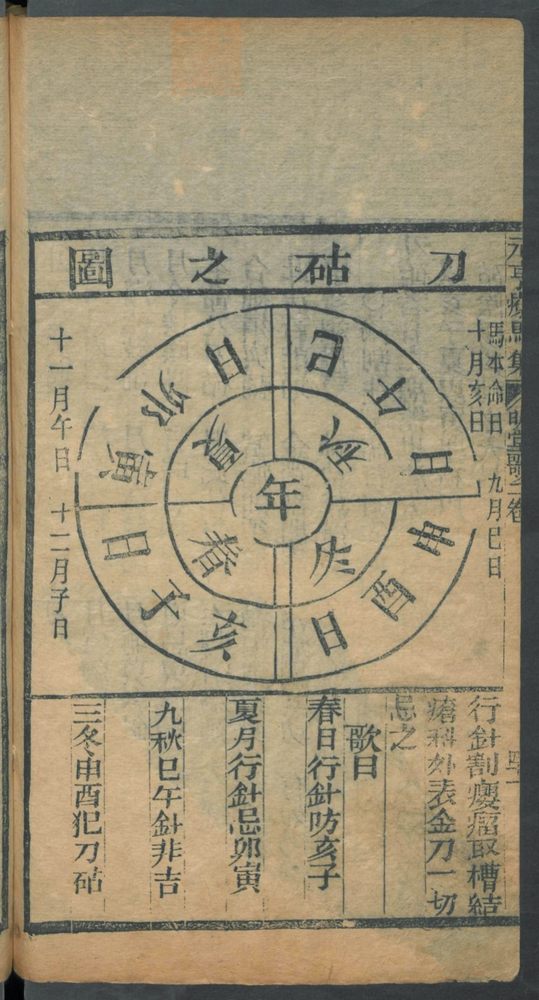 元亨療馬集
刀砧之圖
馬本命日 九月巳日
十月亥日
年
春
亥子日
夏
寅卯日
秋
巳午日
冬
申酉日
十一月午日 十二月子日
行針割癭瘤取槽結
瘡科外表金刀一切
忌之
歌曰
春日行針防亥子
夏月行針忌卯寅
九秋巳午針非吉
三冬申酉犯刀砧